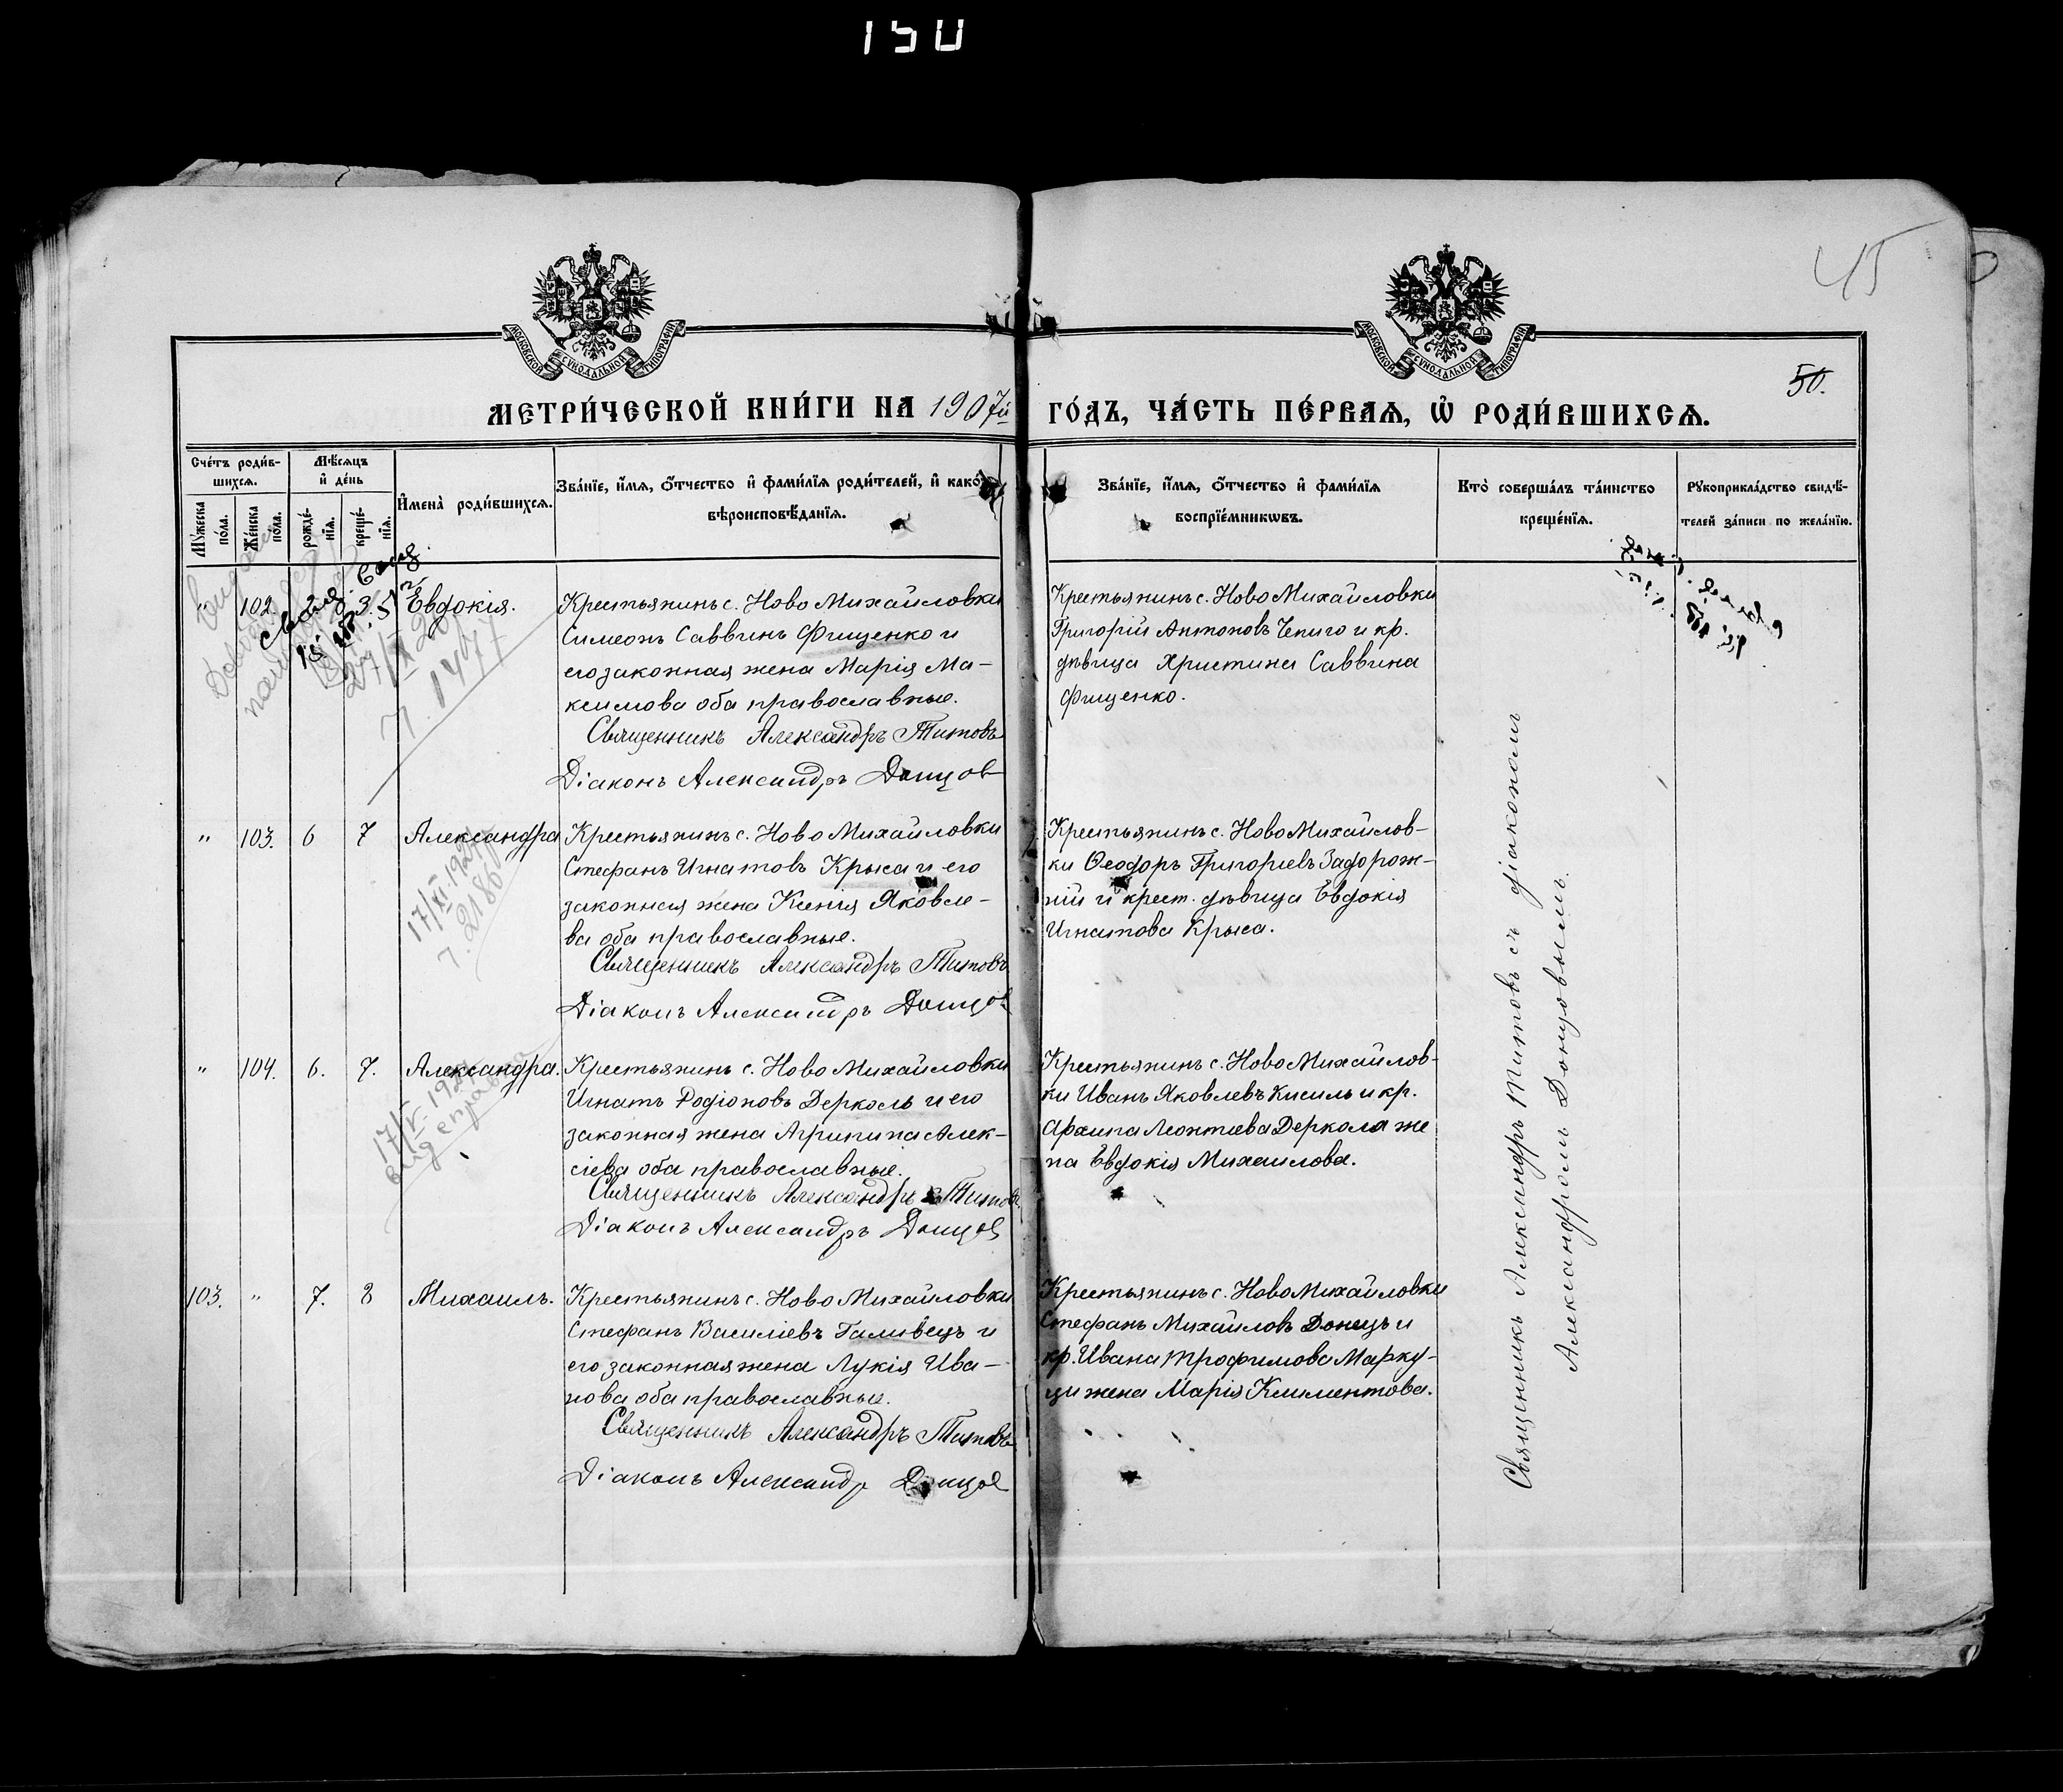 150
45
50.
МОСКОВСКОЙ СѴНОДАЛЬНОЙ ТИПОГРАФІИ
МОСКОВСКОЙ СѴНОДАЛЬНОЙ ТИПОГРАФІИ
МЕТРИ́ЧЕСКОЙ КНИ́ГИ НА 1907й ГО́ДЪ, ЧА́СТЬ ПЕ́РВАЯ, Ѡ РОДИ́ВШИХСЯ.
Сче́тъ роди́в-
шихся.
Мꙋ́жеска по́ла.
Же́нска по́ла.
Мѣ́сяцъ и де́нь
рожде́-
нїя.
креще́-
нїя.
Имена̀ роди́вшихся.
Зва́нїе, и́мя, о́тчество и фами́лїя роди́телей, и како́гѡ
вѣроисповѣ́данїя.
Зва́нїе, и́мя, о́тчество и фами́лїя
воспрїе́мникѡвъ.
Кто̀ соверша́лъ та́инство
креще́нїя.
Рꙋкоприкла́дство свидѣ́-
телей за́писи по жела́нїю.
" 102. 3. Евдокія.
27/IX
1477
Крестьянинъ с. Ново Михайловки
Симеонъ Саввинъ Фищенко и
его законная жена Марія Ма-
ксимова оба православные.
Священникъ Александръ Титовъ
Діаконъ Александръ Донцов
Крестьянинъ с. Ново Михайловки
Григорій Антоновъ Чепиго и кр.
дѣвица Христина Саввина
Фищенко.
" 103. 6 7 Александра
17/XI 192
2180
Крестьянинъ с. Ново Михайловки
Стефанъ Игнатовъ Крыса и его
законная жена Ксенія Яковле-
ва оба православные.
Священникъ Александръ Титовъ
Діаконъ Александръ Донцов
Крестьянинъ с. Ново Михайлов-
ки Ѳеодоръ Григорьевъ Задорож-
ній и крест. дѣвица Евдокія
Игнатова Крыса.
" 104. 6. 7. Александра.
17/V 192
Крестьянинъ с. Ново Михайловки
Игнатъ Родіоновъ Деркольъ и его
законная жена Агрипина Алек-
сіева оба православные.
Священникъ Александръ Титовъ
Діаконъ Александръ Донцов
Крестьянинъ с. Ново Михайлов-
ки Иванъ Яковлевъ Кисиль и кр.
Архипа Леонтіева Деркола же
на Евдокія Михаилова.
103. " 7. 8 Михаилъ.
Крестьянинъ с. Ново Михайловки
Стефанъ Василіевъ Галивецъ и
его законная жена Лукія Ива-
нова оба православные.
Священникъ Александръ Титовъ
Діаконъ Александр Донцов
Крестьянинъ с. Ново Михайловки
Стефанъ Михайловъ Донецъ и
кр. Ивана Трофимова Марку-
ци жена Марія Климентова.
Священникъ Александръ Титовъ съ діакономъ
Александромъ Донцовымъ.